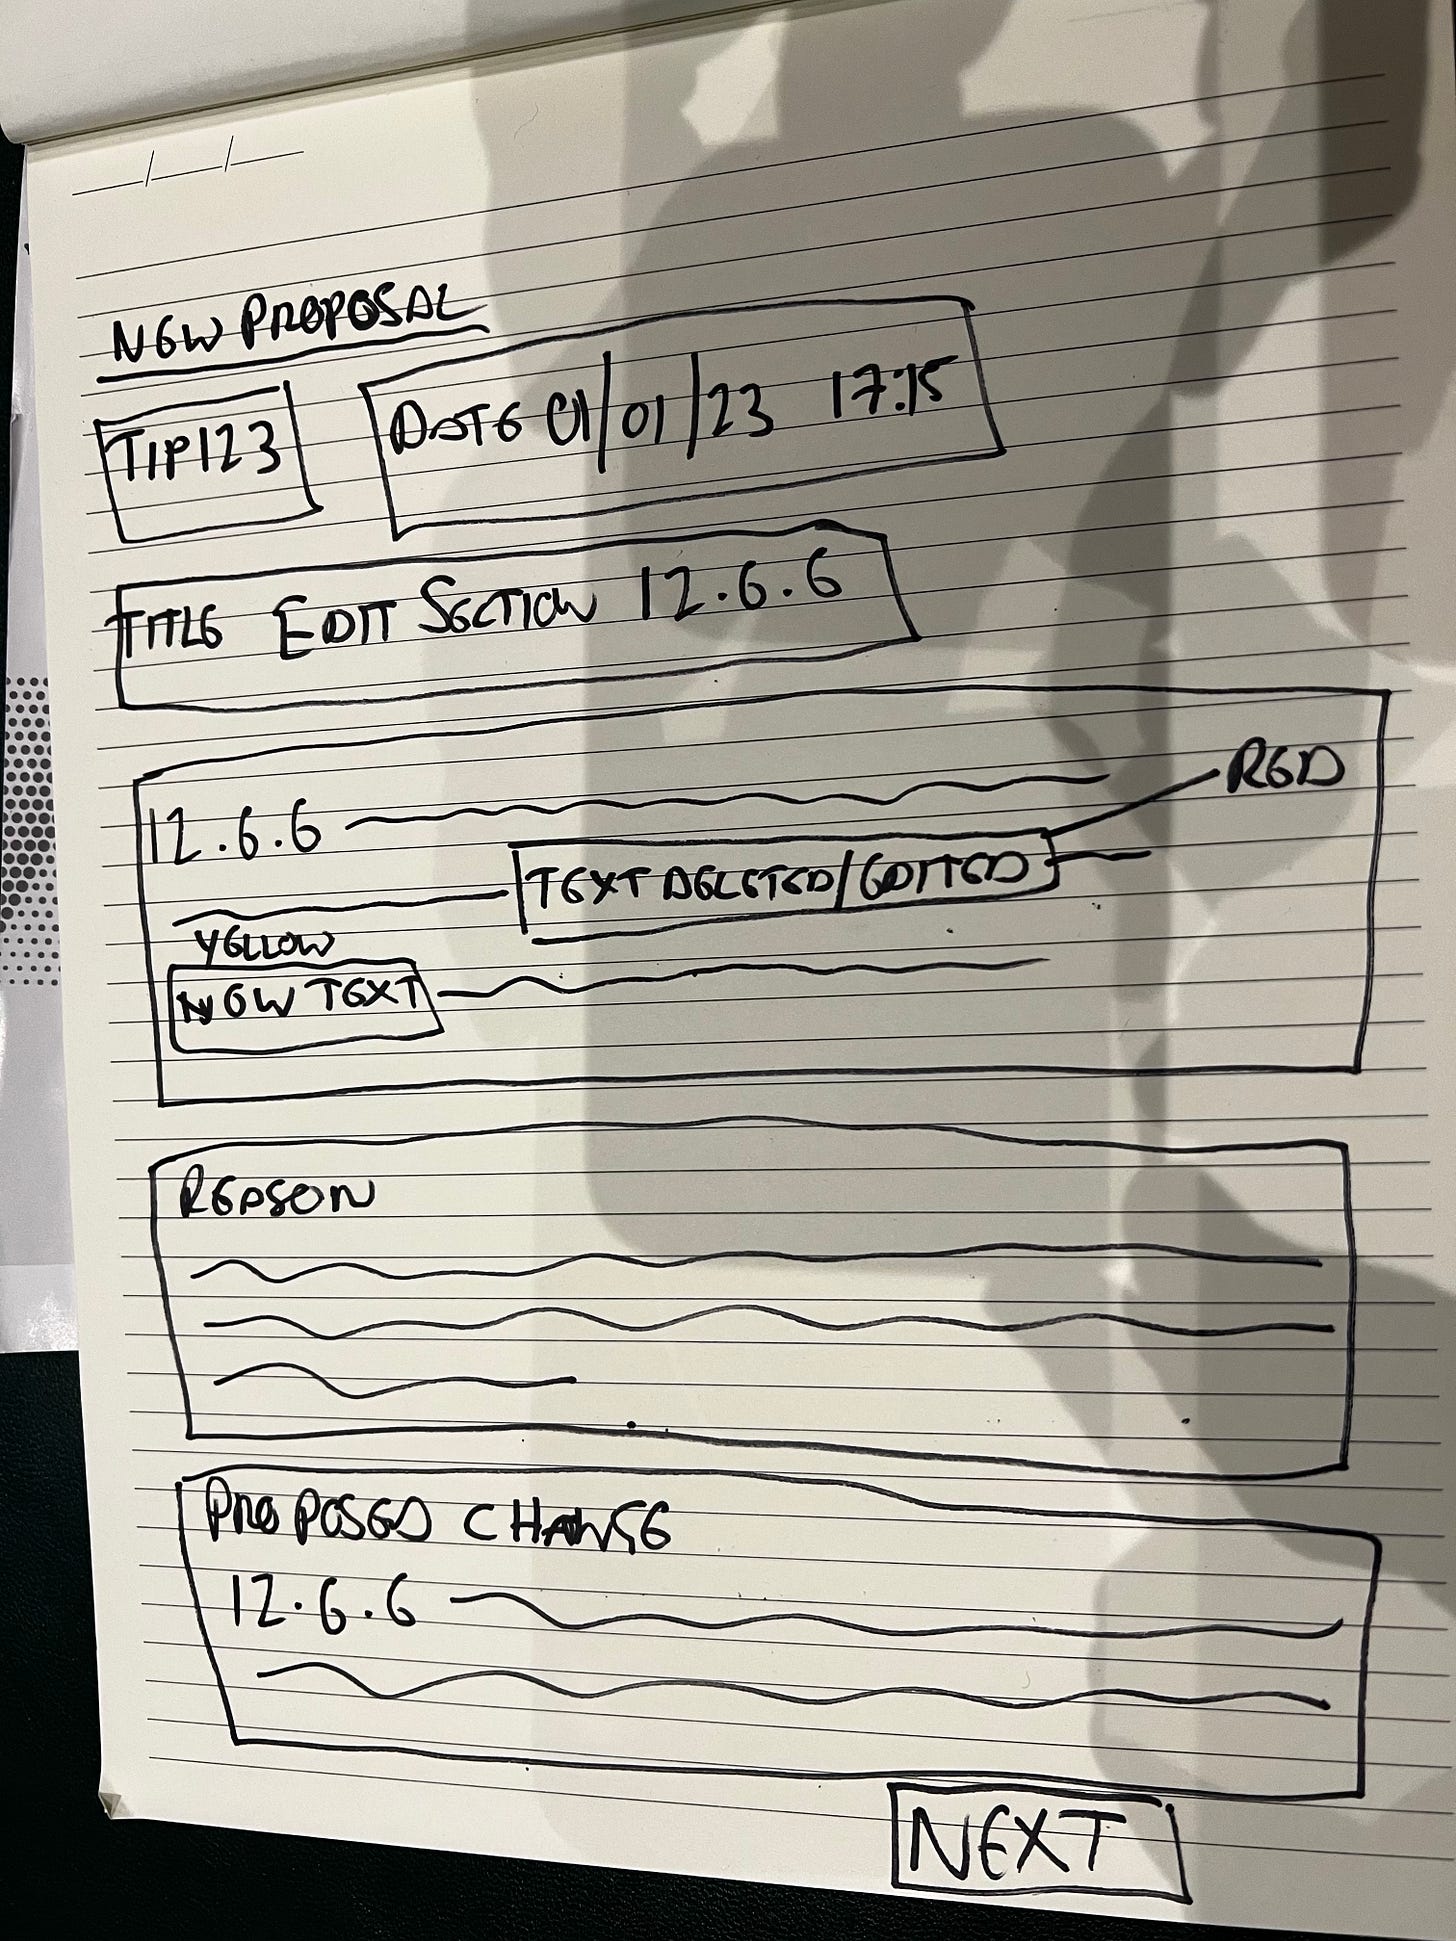 NEW PROPOSAL
TIP123
DATE 01/01/23 17:15
TITLE EDIT SECTION 12.6.6
RED
12.6.6
TEXT DELETED/EDITED
YELLOW
NEW TEXT
REASON
PROPOSED CHANGE
12.6.6
NEXT